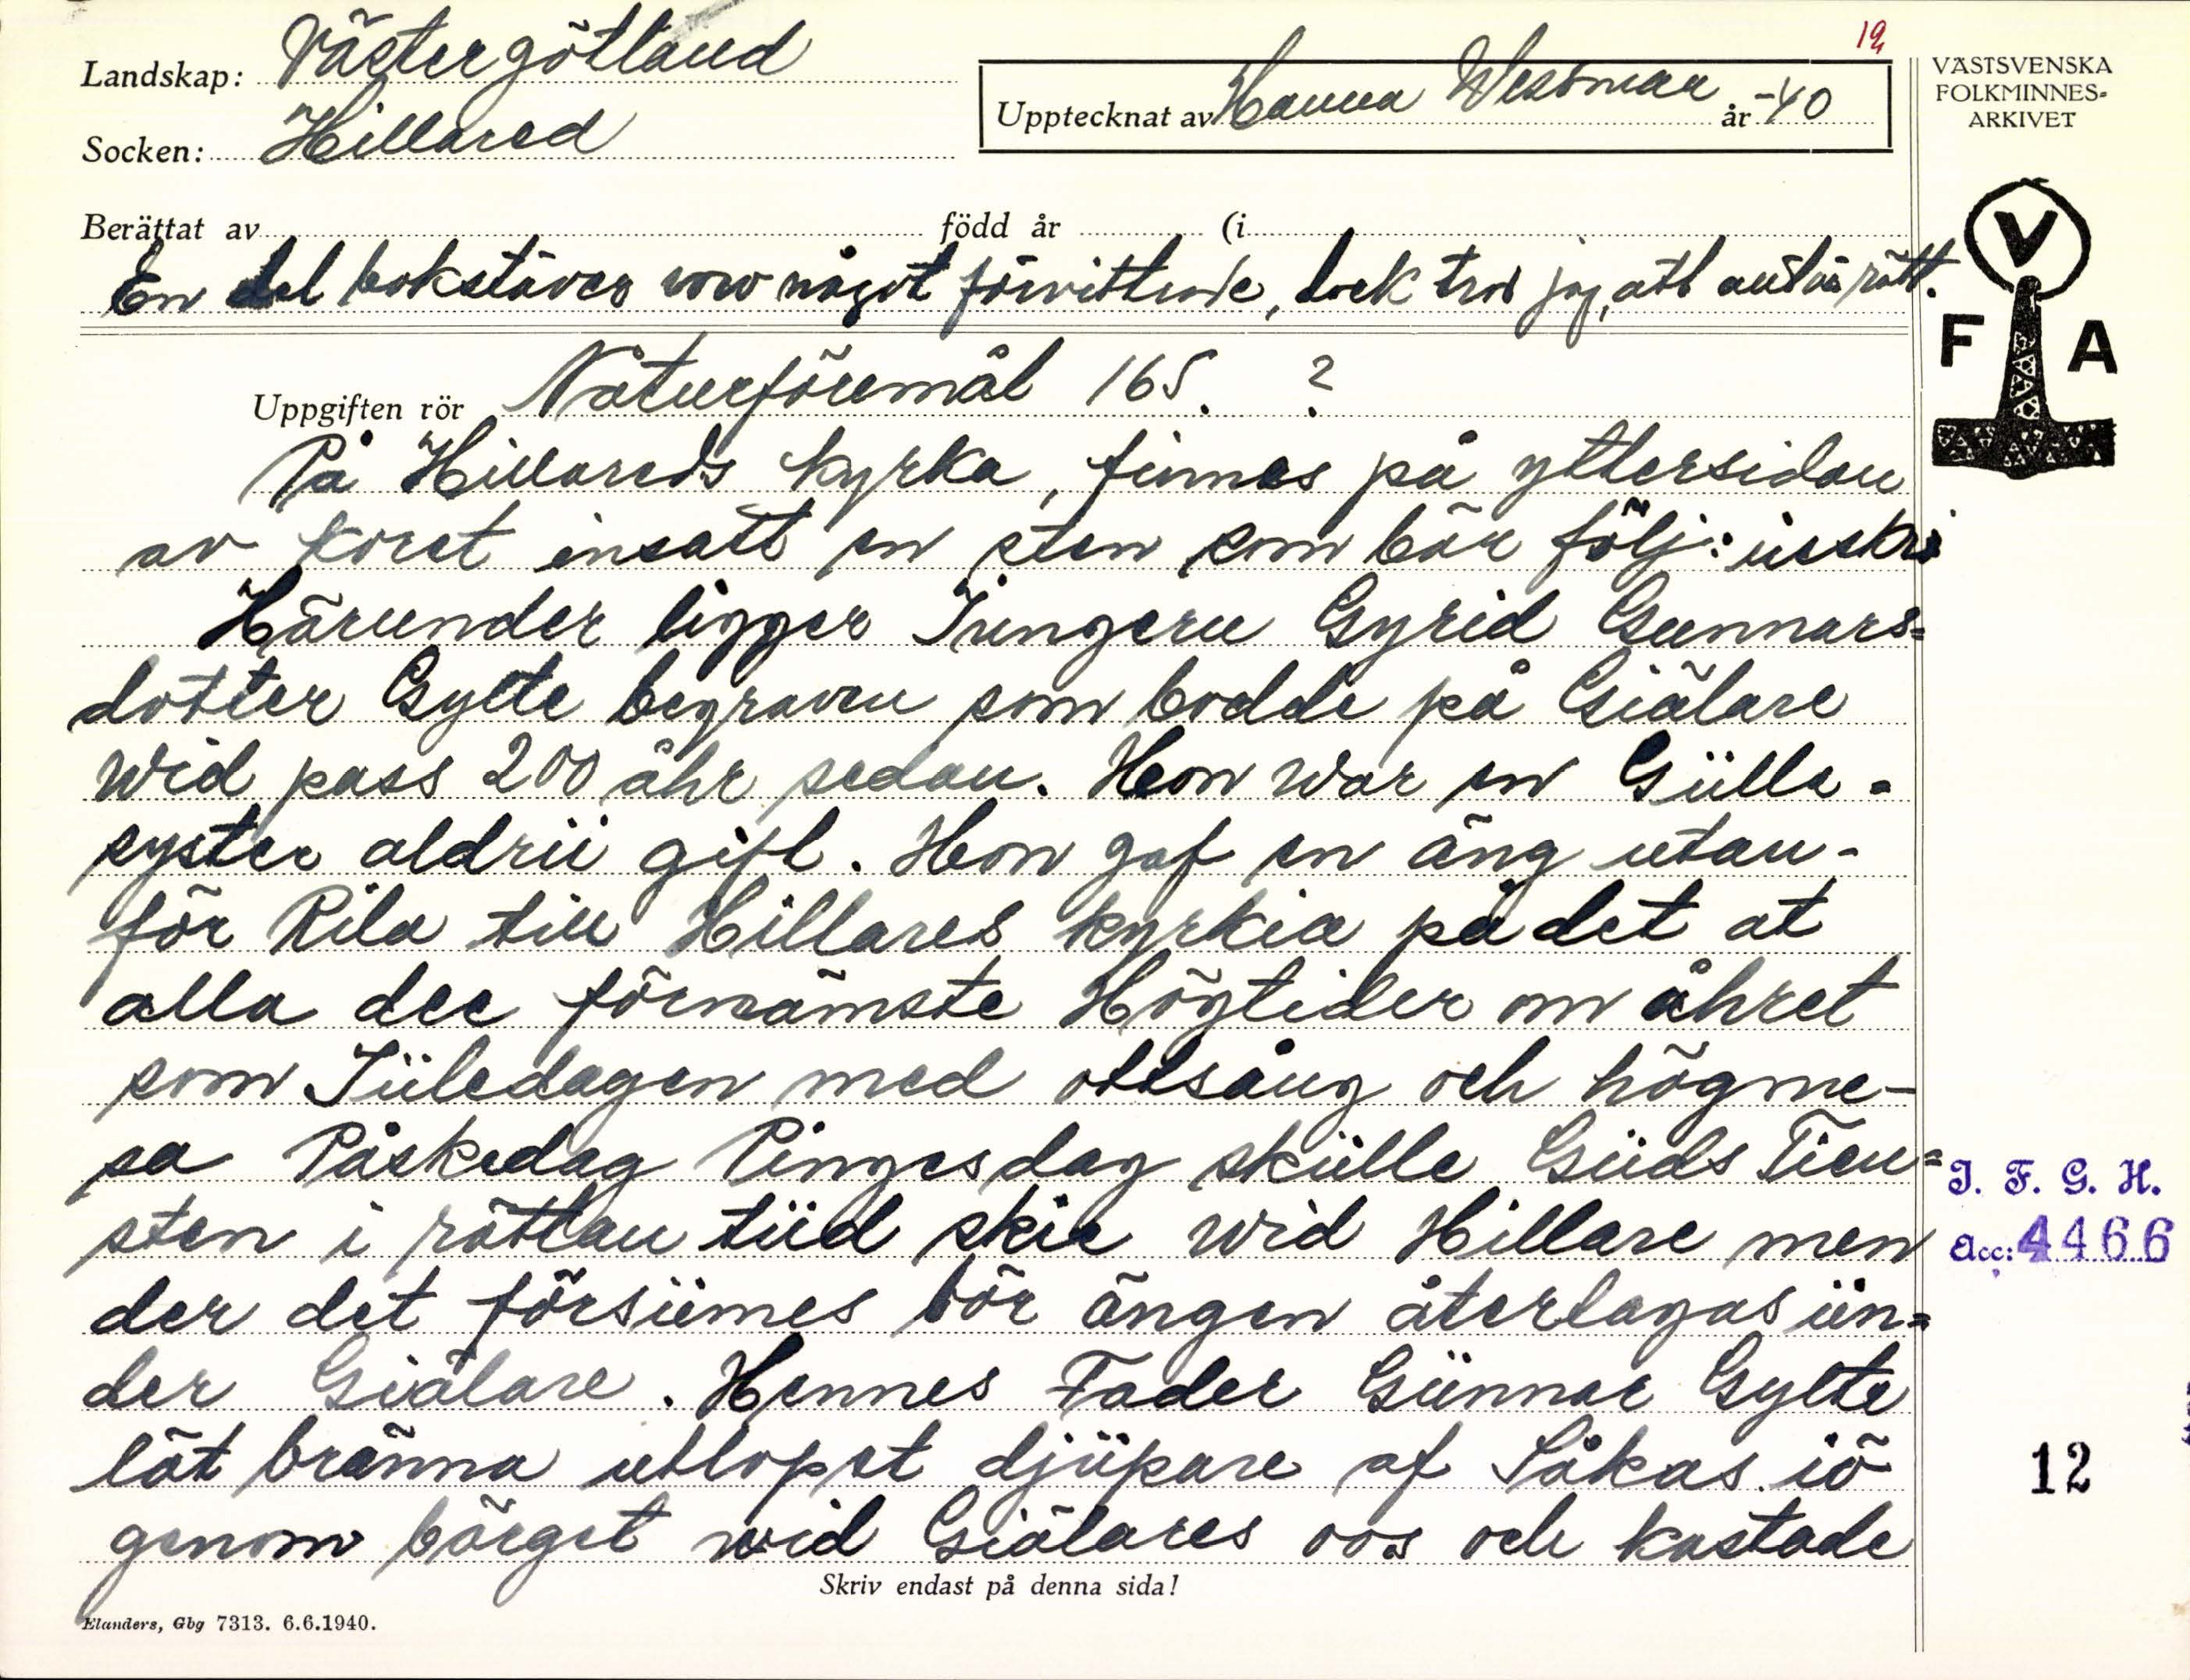 12
Landskap: Västergötland
Upptecknat av Hanna Wessman år -40
Socken: Hillared
VÄSTSVENSKA
FOLKMINNES-
ARKIVET
Berättat av född år (i
En del bokstäver voro något förvittrade, dock tror jag, att allt är rätt.
V
F A
Uppgiften rör Naturföremål 165. ?
På Hillareds kyrka, finnes på yttersidan
av koret insatt en sten som bär följ: inskri
Härunder ligger Jungeru Gyrid Gunnars=
dotter Gylte begraven som bodde på Giälare
Wid pass 200 åhr sedan. Hon War en Gülle=
syster aldrii gift. Hon gaf en äng utan-
för Rila till Hillares kyrkia på det at
alla dee förnämste Högtider om åhret
som Jüledagen med ottsång och högme-
sa Påskedag Pingesdag skülle Güds Tien=
sten i rättan tiid skie wid Hillare men
der det försümes bör ängen återtagas ün=
der Giälare. Hennes Fader Günnar Gylte
lät bränna utlopet djüpare af Såkas iö
genom bärget wid Giälares oos och kastade
J. F. G. H.
Acc: 4466
12
Skriv endast på denna sida!
Elanders, Gbg 7313. 6.6.1940.